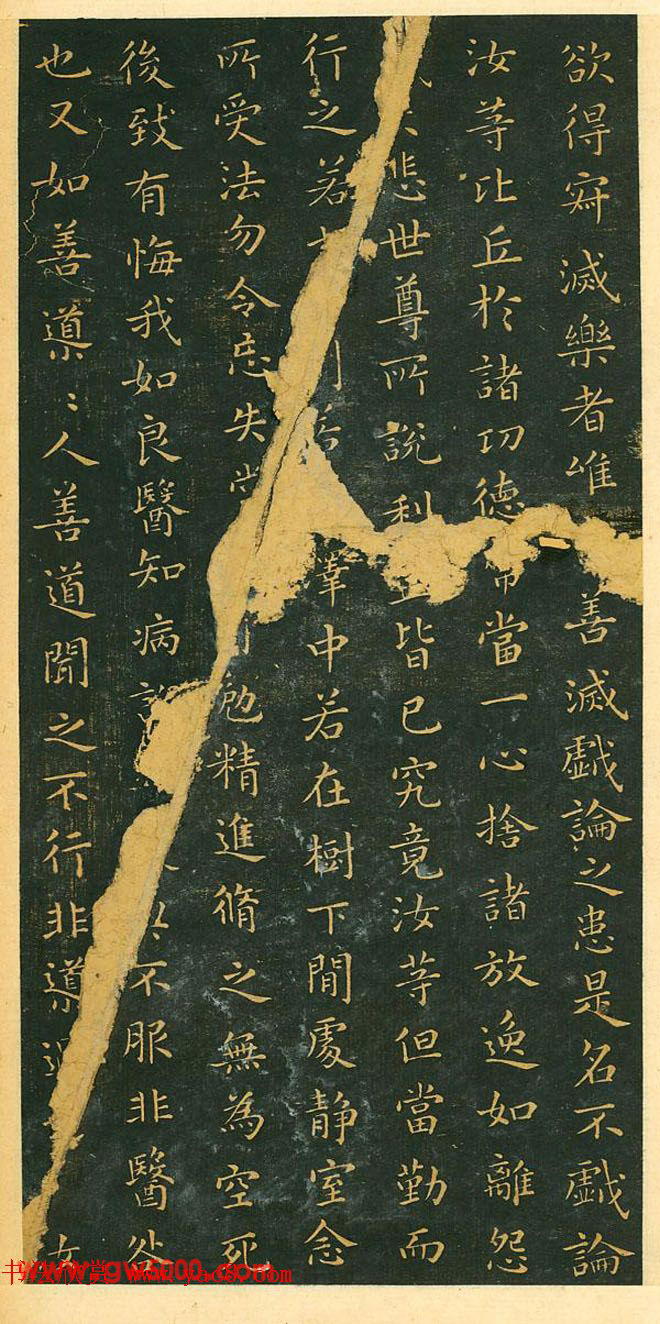 欲得寂滅樂者唯善滅戲論之患是名不戲論
汝等比丘於諸功德當一心捨諸放逸如離怨
悲世尊所說利皆已究竟汝等但當勤而
行之若中若在樹下閒處靜室念
所受法勿令忘失勉精進脩之無為空死
後致有悔我如良醫知病不服非醫咎
也又如善導〻人善道聞之不行非導